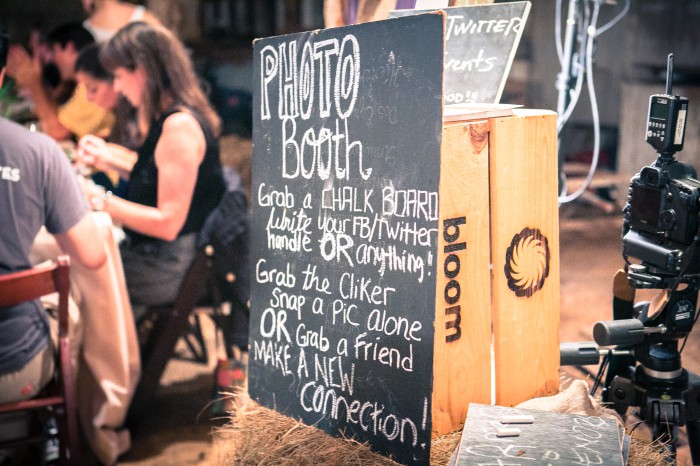 PHOTO
Booth
Grab a CHALK BOARD
Write your FB/Twitter
handle OR anything!
Grab the Cliker
snap a Pic alone
OR Grab a Friend
MAKE A NEW
Connection!
Twitter
vents
bloom